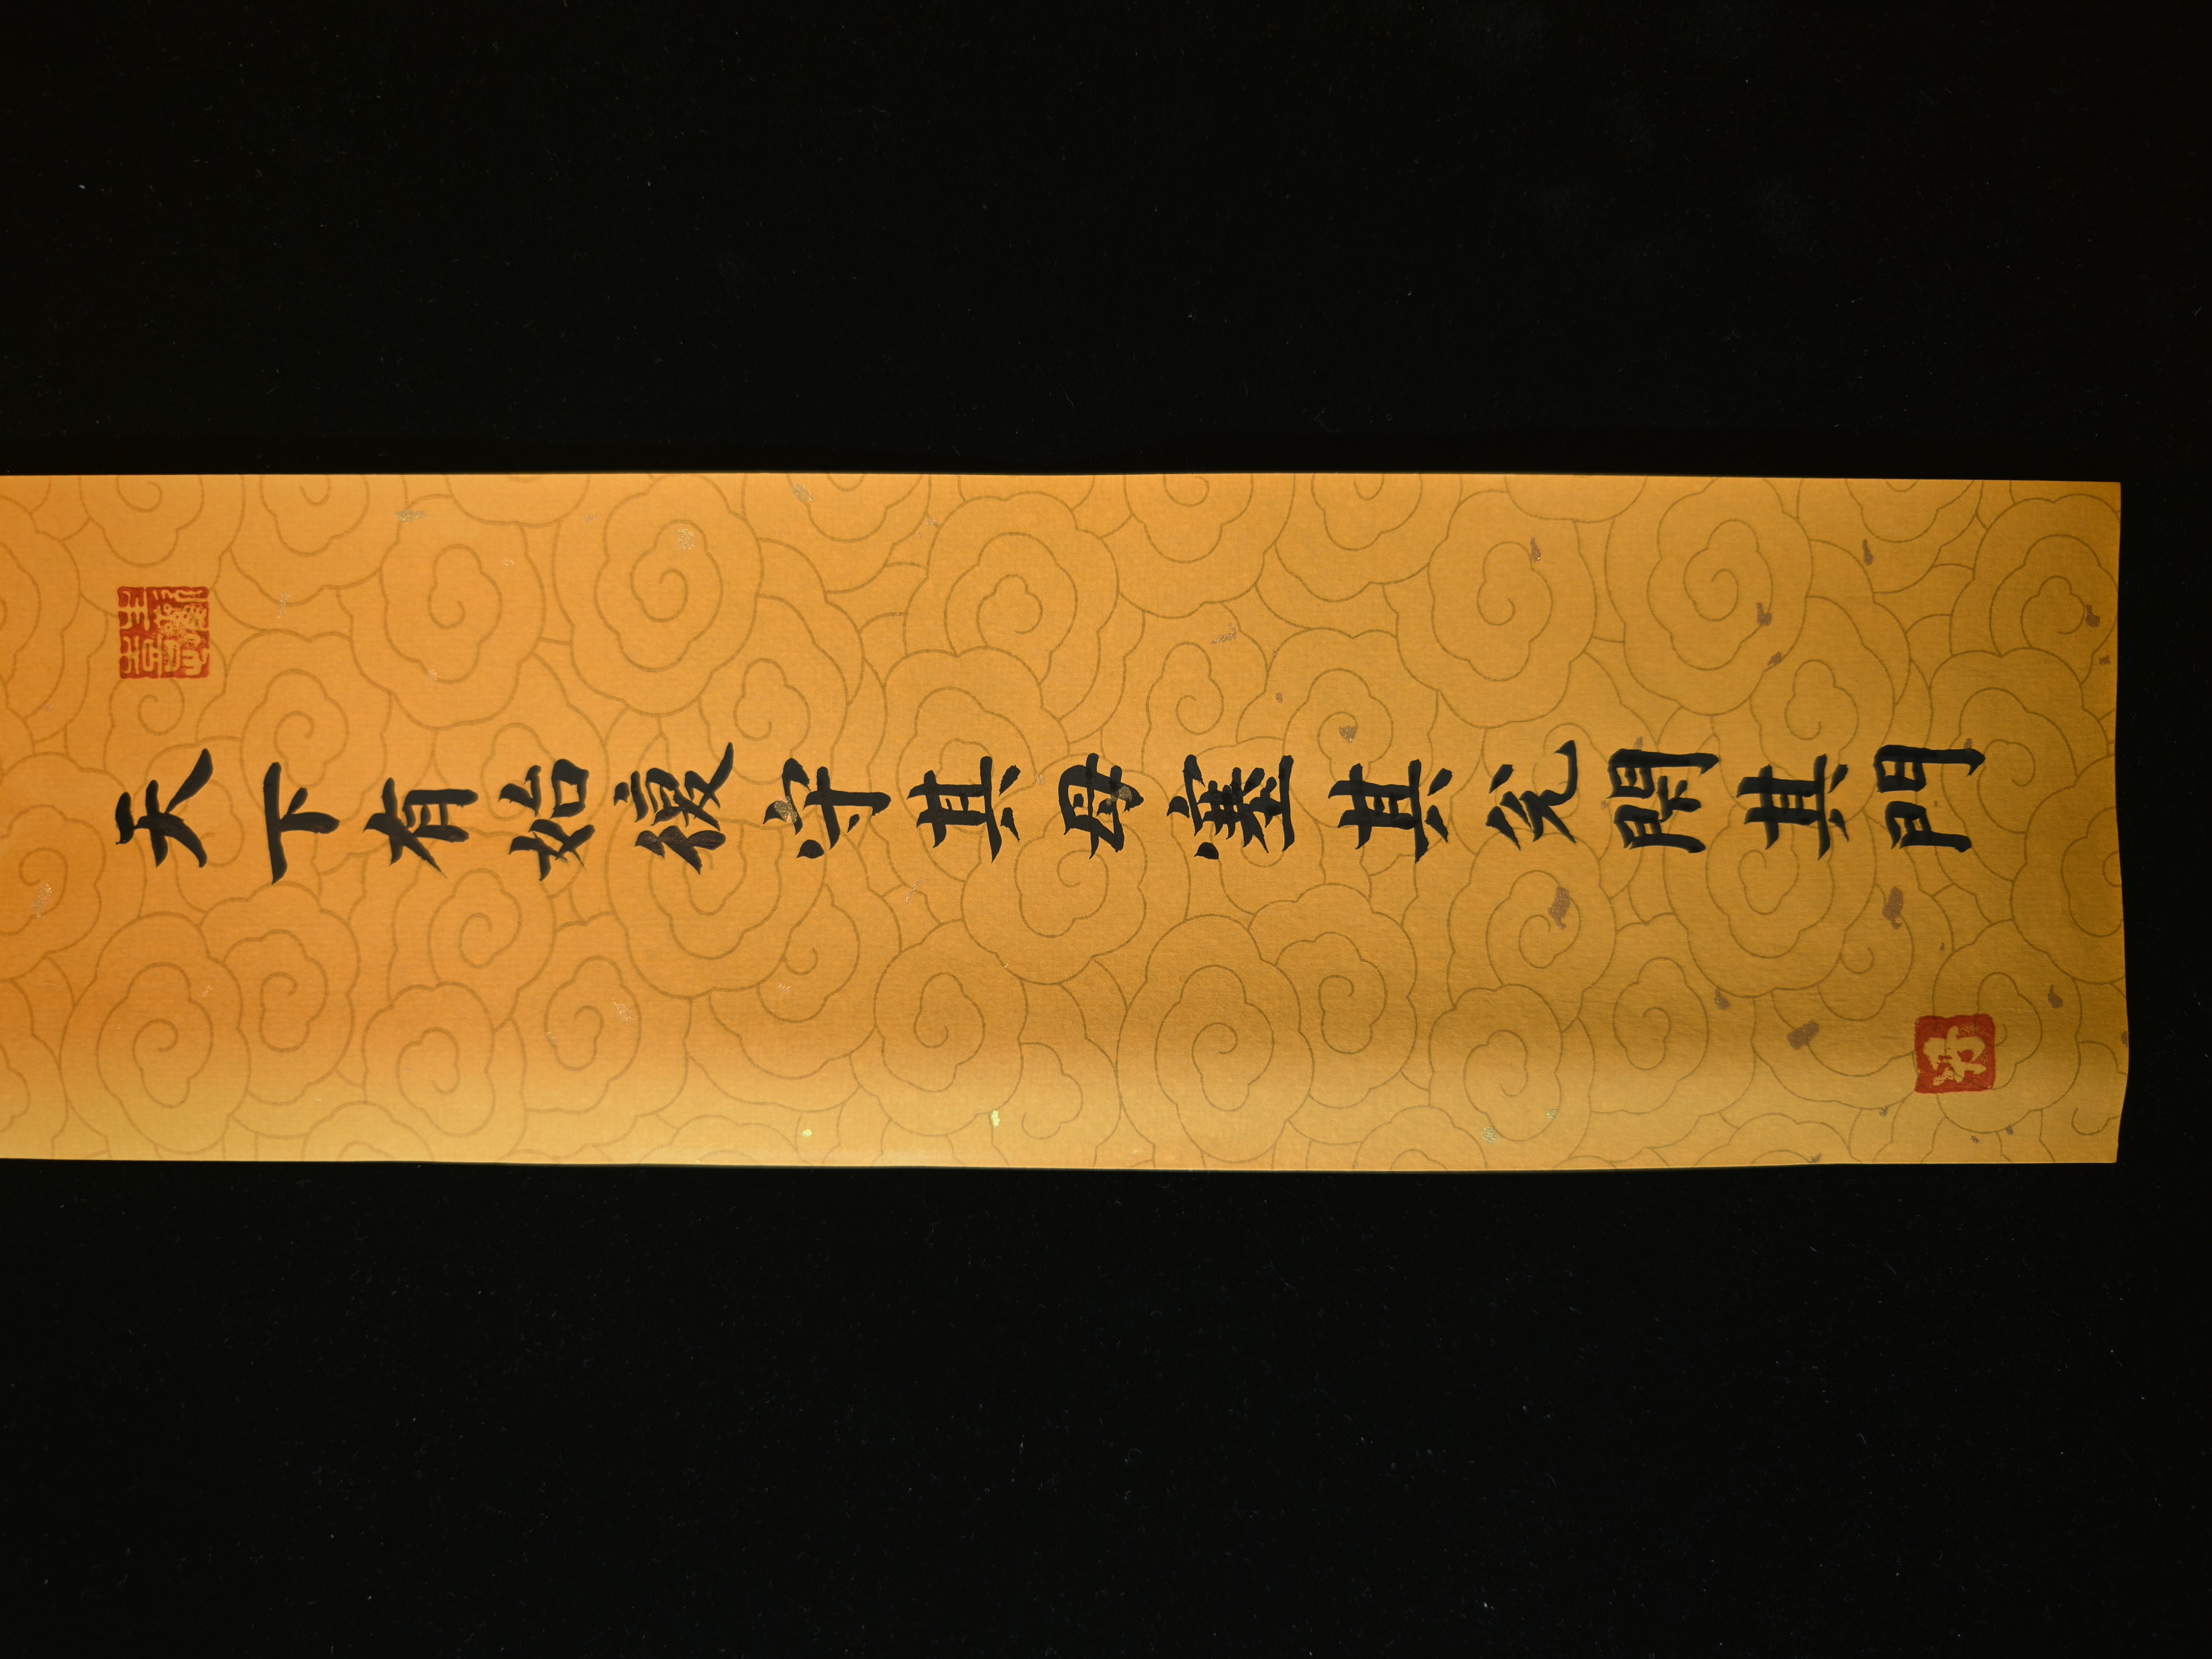 天下有始復守其母塞其兊閉其門